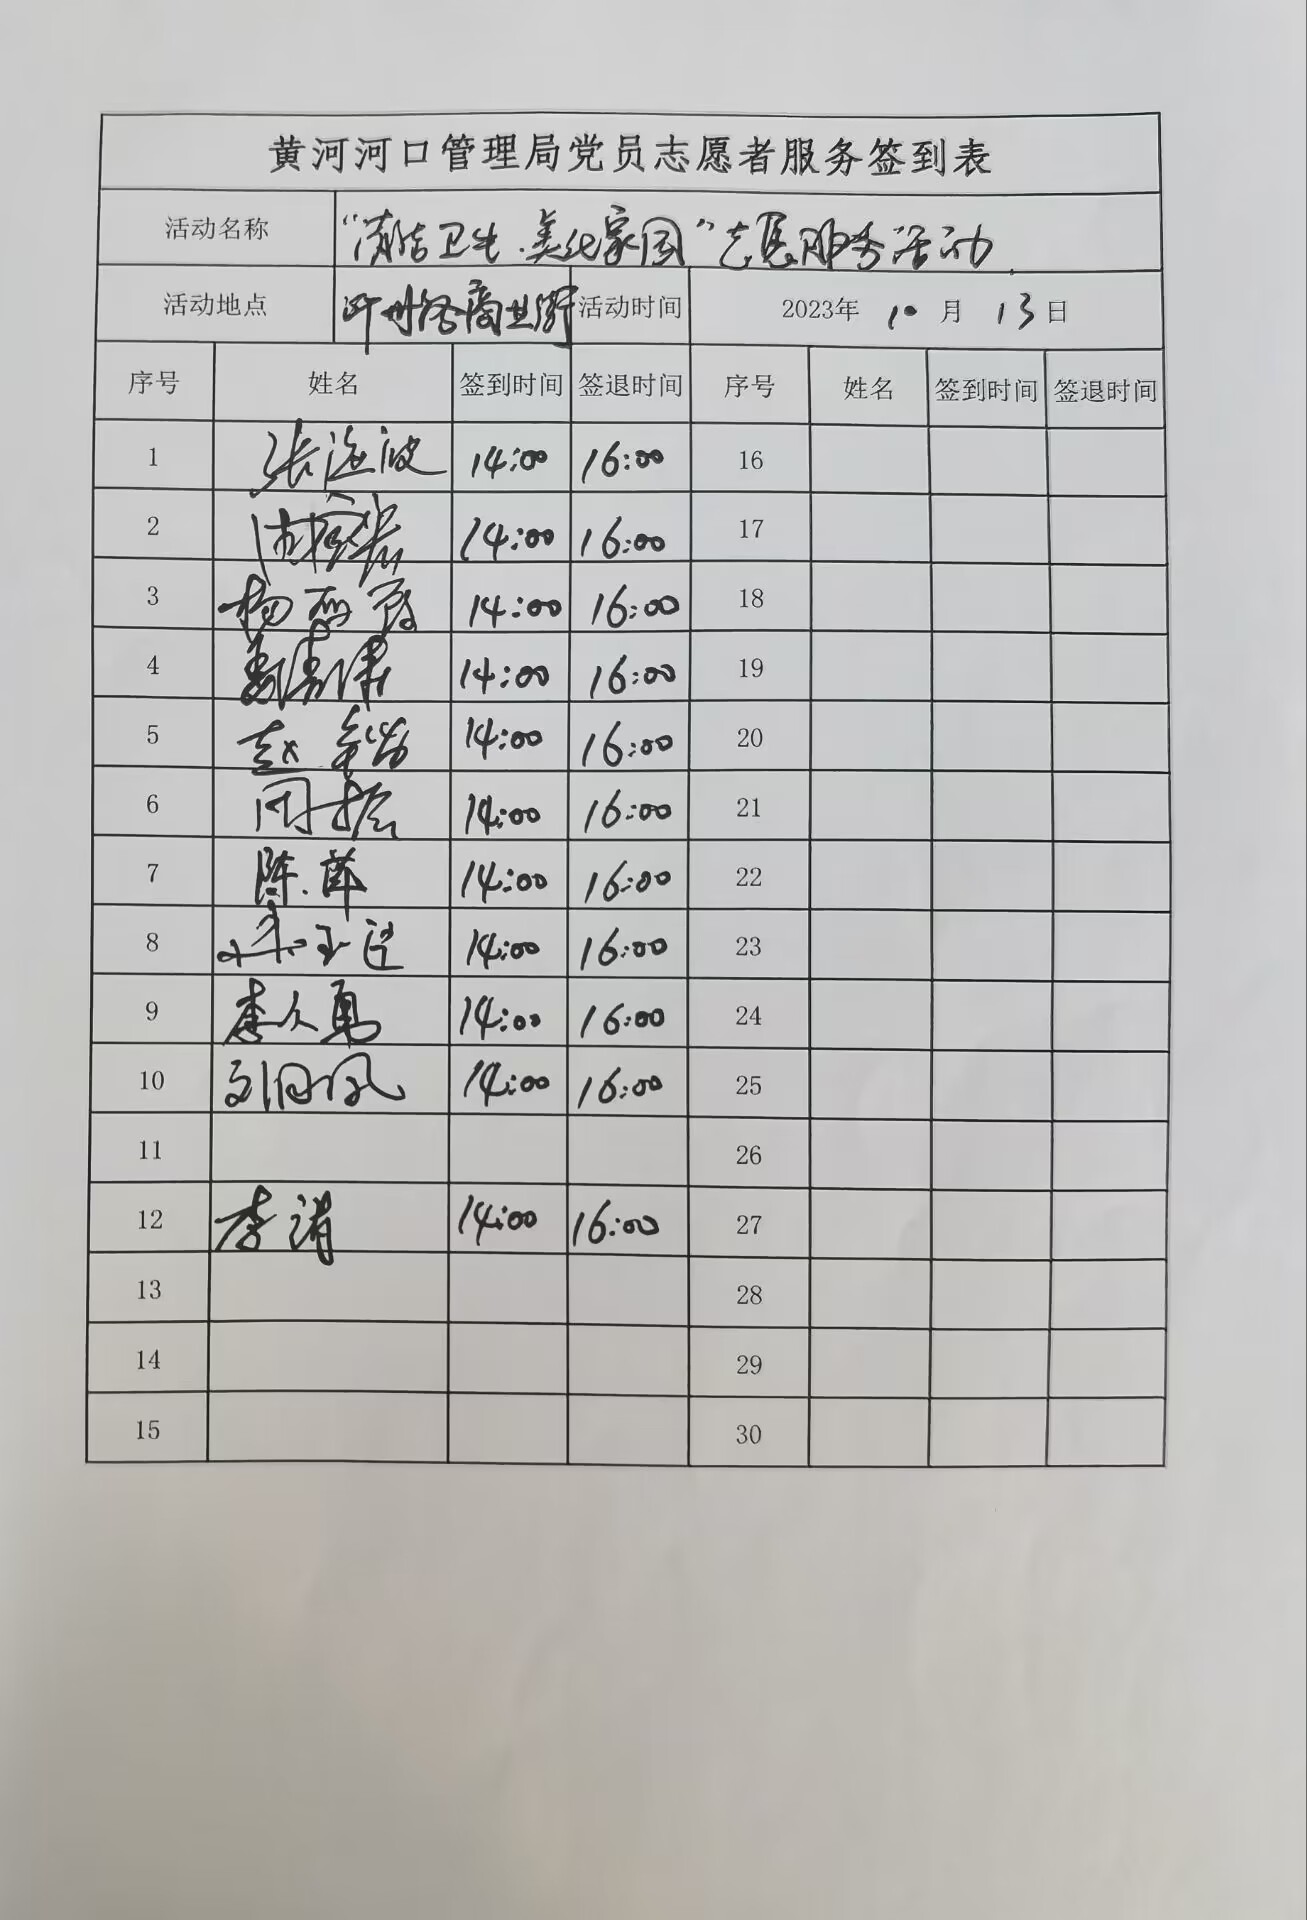 黄河河口管理局党员志愿者服务签到表
活动名称 “清洁卫生.美化家园”志愿服务活动
活动地点 沂州路商业街 活动时间 2023年 10 月 13 日
序号 姓名 签到时间 签退时间 序号 姓名 签到时间 签退时间
1 张运波 14:00 16:00 16
2 14:00 16:00 17
3 杨丽 14:00 16:00 18
4 14:00 16:00 19
5 赵 14:00 16:00 20
6 周振 14:00 16:00 21
7 陈.苗 14:00 16:00 22
8 14:00 16:00 23
9 李久勇 14:00 16:00 24
10 刘国凤 14:00 16:00 25
11 26
12 李靖 14:00 16:00 27
13 28
14 29
15 30